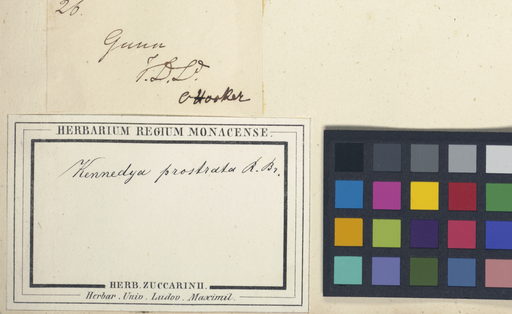 26.
Gunn
V.D.L.
Hooker
HERBARIUM REGIUM MONACENSE.
Kennedya prostrata R. Br.
HERB. ZUCCARINII.
Herbar. Univ. Ludov. Maximil.